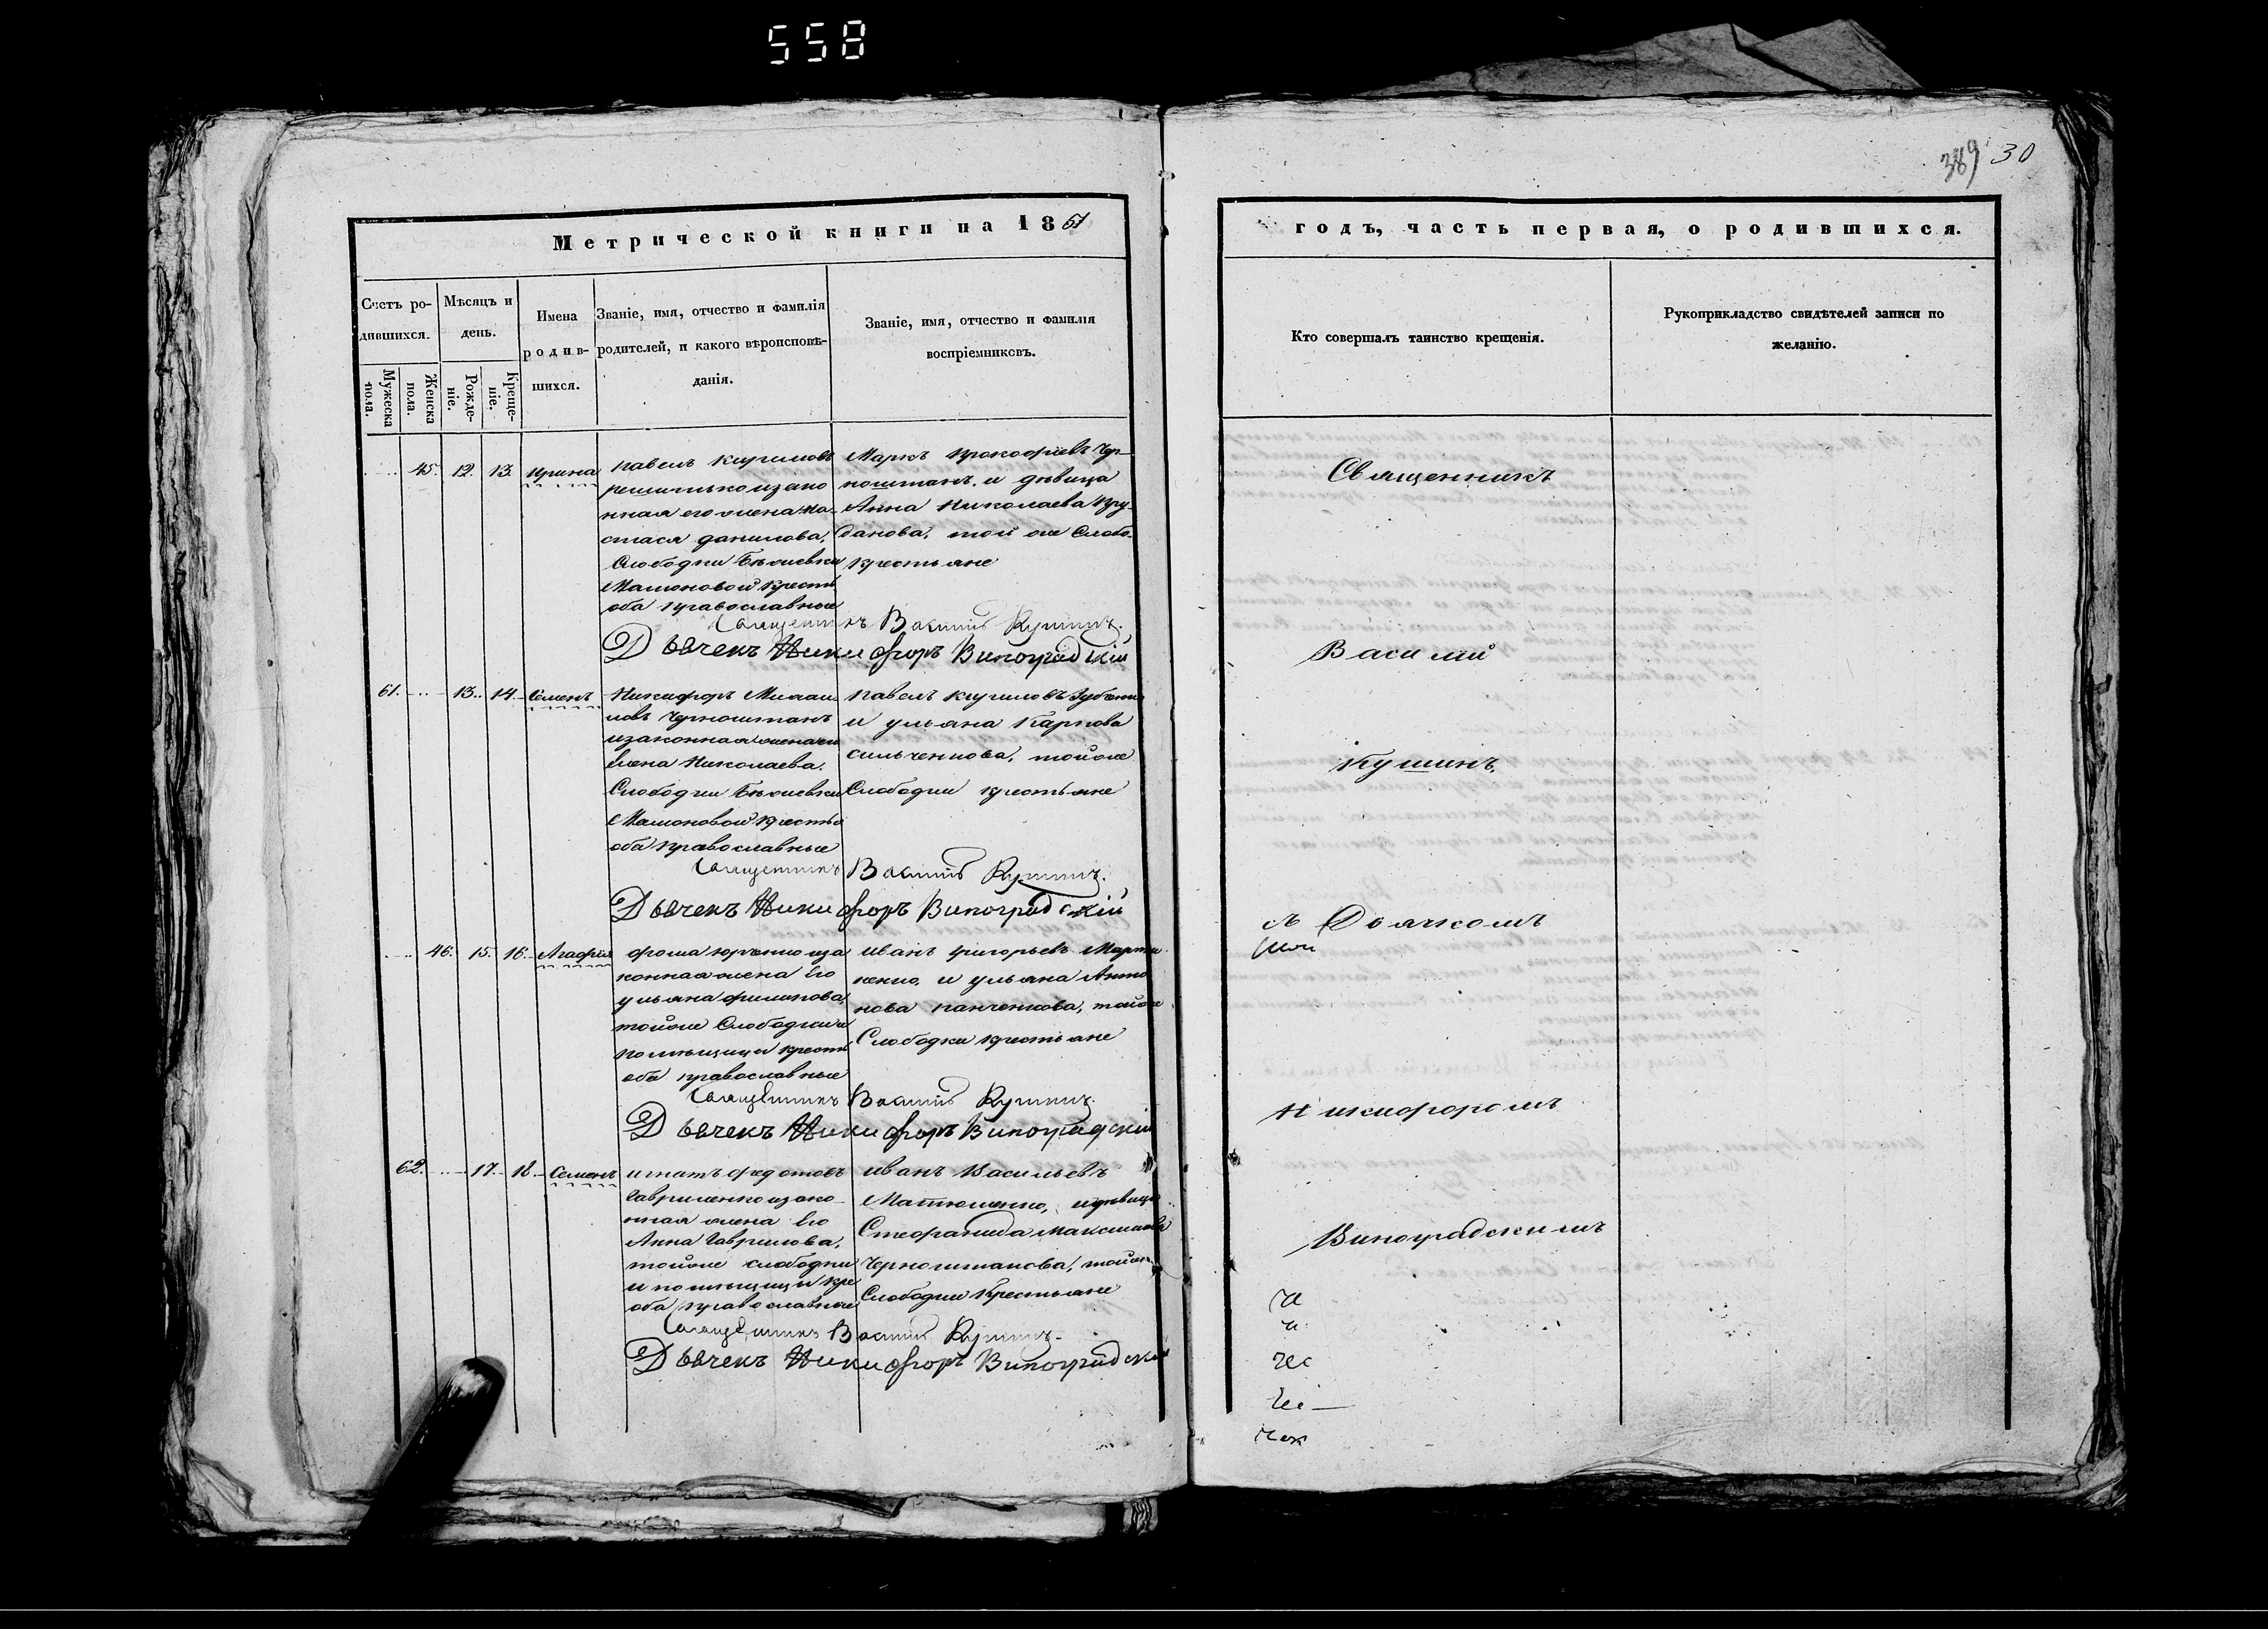 558
389 30
Метрической книги на 1851
годъ, часть первая, о родившихся.
Счетъ ро-
дившихся.
Мужеска
пола.
Женска
пола.
Мѣсяцъ и
день.
Рожде-
ніе.
Креще-
ніе.
Имена
родив-
шихся.
Званіе, имя, отчество и фамилія
родителей, и какого вѣроисповѣ-
данія.
Званіе, имя, отчество и фамилія
воспріемниковъ.
Кто совершалъ таинство крещенія.
Рукоприкладство свидѣтелей записи по
желанію.
45. 12. 13. Ирина
павелъ кириловъ
нная его жена На-
стася данилова,
Слободки
оба православные
Маркъ прокофіевъ Чер-
ноштанъ. и дѣвица
Анна Николаева Пру-
данова, той же Слобо.
крестьяне
Священникъ Василій Кушинъ.
Дьячекъ Никифоръ Виноградскій
61. 13. 14. Семенъ
Никифоръ Михаи
ловъ Черноштанъ
изаконная жена
Елена Николаева.
Слободки
оба православные
павелъ кириловъ
и ульяна Карпова
сильченкова, тойже
Слободки крестьяне
Священникъ Василій Кушинъ.
Дьячекъ Никифоръ Виноградскій
46. 15. 16. Агафія
фома юрченко иза
конная жена Его
ульяна филипова,
тойже Слободки и
помѣщицы крестья
оба православные
иванъ григорьевъ Марти
ненко, и ульяна Анто
нова панченкова, тойже
Слободки крестьяне
Священникъ Василій Кушинъ.
Дьячекъ Никифоръ Виноградскій
62. 17. 18. Семенъ
игнатъ федотовъ
Гавриленко изако-
нная жена Его
Анна Гаврилова,
тойже слободки
и помѣщицы кре
оба православные
иванъ Васильевъ
Матюшенко, идѣвица
Стефанида Максимова
Черноштанова, тойже
Слободки Крестьяне
Священникъ Василій Кушинъ.
Дьячекъ Никифоръ Виноградскій
Священникъ
Василій
Кушинъ,
съ Дьячкомъ
Никифоромъ
Виноградскимъ